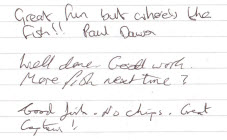 Great fun but where's the
fish!! Paul Dawn
Well done. Good work.
More fish next time?
Good fish. No chips. Great
Captain!